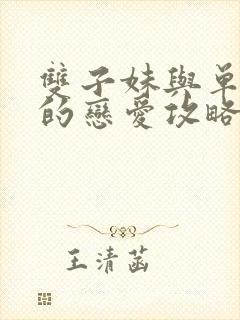 雙子妹與單
的戀愛攻略
王清菡